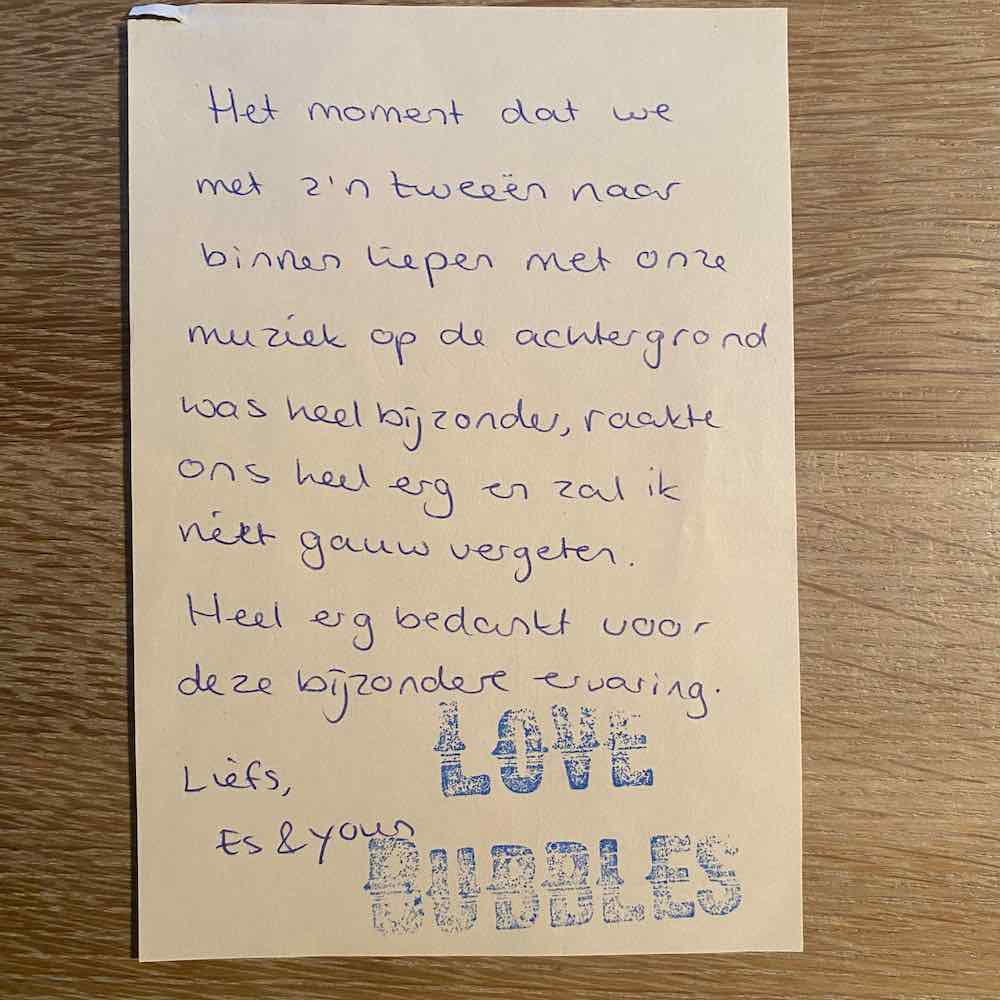 Het moment dat we
met z'n tweeën naar
binnen liepen met onze
muziek op de achtergrond
was heel bijzonder, raakte
ons heel erg en zal ik
niet gauw vergeten.
Heel erg bedankt voor
deze bijzondere ervaring.
LOVE
Liefs,
Es & Youn
BUBBLES